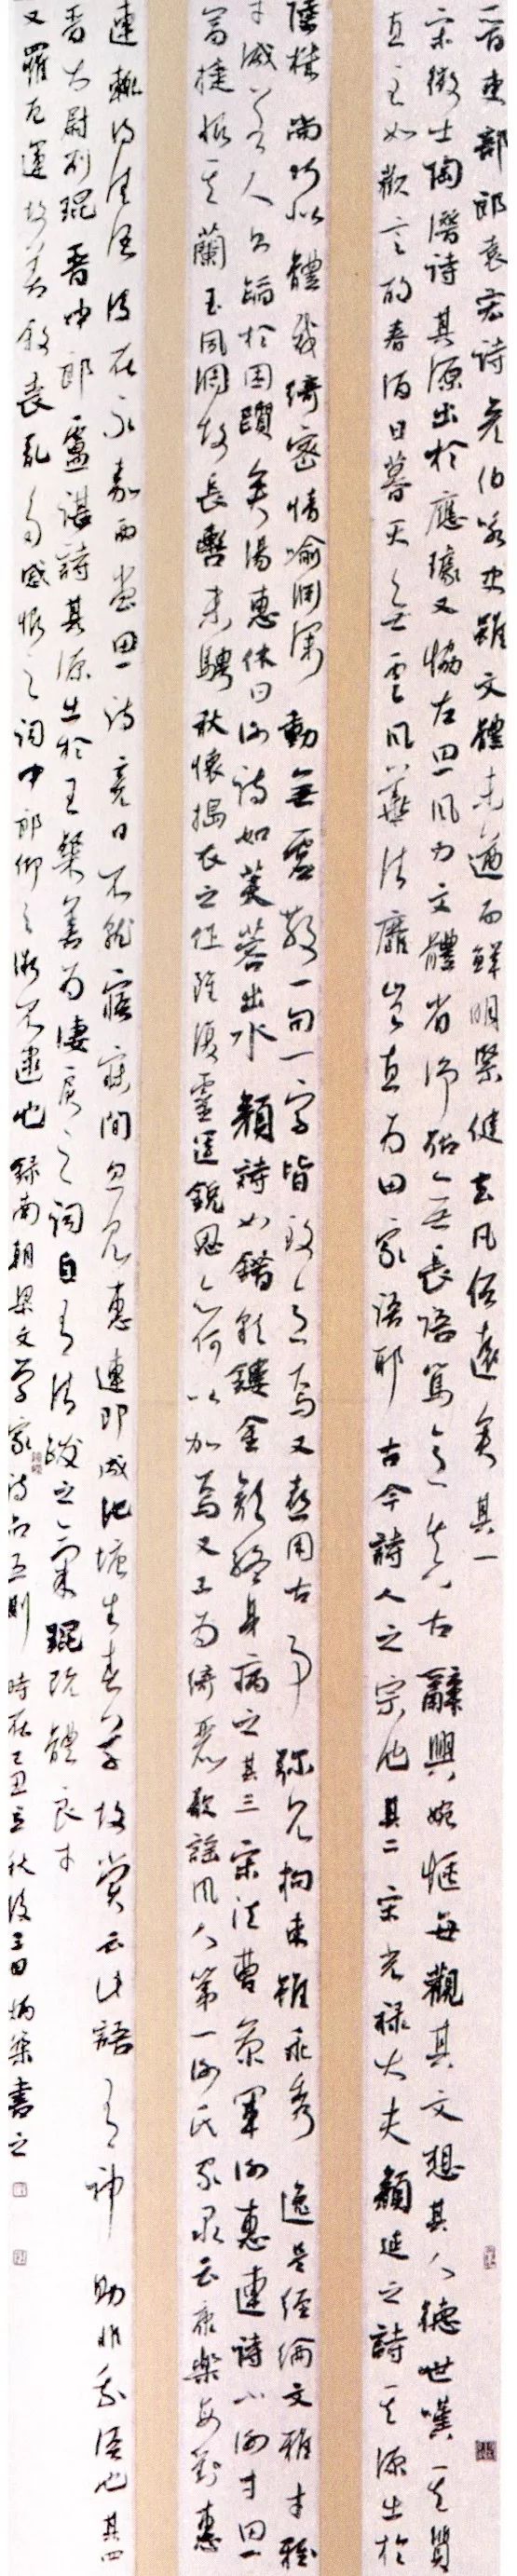 晋吏部郎袁宏詩彥伯詠史雖文體未遒而鮮明緊健去凡俗遠矣其一
宋徵士陶潛詩其源出於應璩又協左思風力文體省淨殆無長語篤意真古辭興婉愜每觀其文想其人德世嘆其質
直至如歡言酌春酒日暮天無雲風華清靡豈直為田家語耶古今詩人之宗也其二宋光祿大夫顏延之詩其源出於
陸機尚巧似體裁綺密情喻淵深動無虛散一句一字皆致意焉又喜用古事彌見拘束雖乖秀逸是經綸文雅才雅
才減若人則蹈於困躓矣湯惠休曰謝詩如芙蓉出水顏詩如錯彩鏤金顏終身病之其三宋法曹參軍謝惠連詩小謝才思
富捷恨其蘭玉夙凋故長轡未騁秋懷搗衣之作雖復靈運銳思亦何以加焉又工為綺麗歌謠風人第一謝氏家錄云康樂每對惠
連輒得佳語後在永嘉西堂思詩竟日不就寤寐間忽見惠連即成池塘生春草故嘗云此語有神助非我語也其四
晋太尉劉琨晋中郎盧諶詩其源出於王粲善為悽戾之詞自有清拔之氣琨既體良才
又罹厄運故善敘喪亂多感恨之詞中郎仰之微不逮也錄南朝梁文學家詩品五則時在己丑立秋後三日炳榮書之